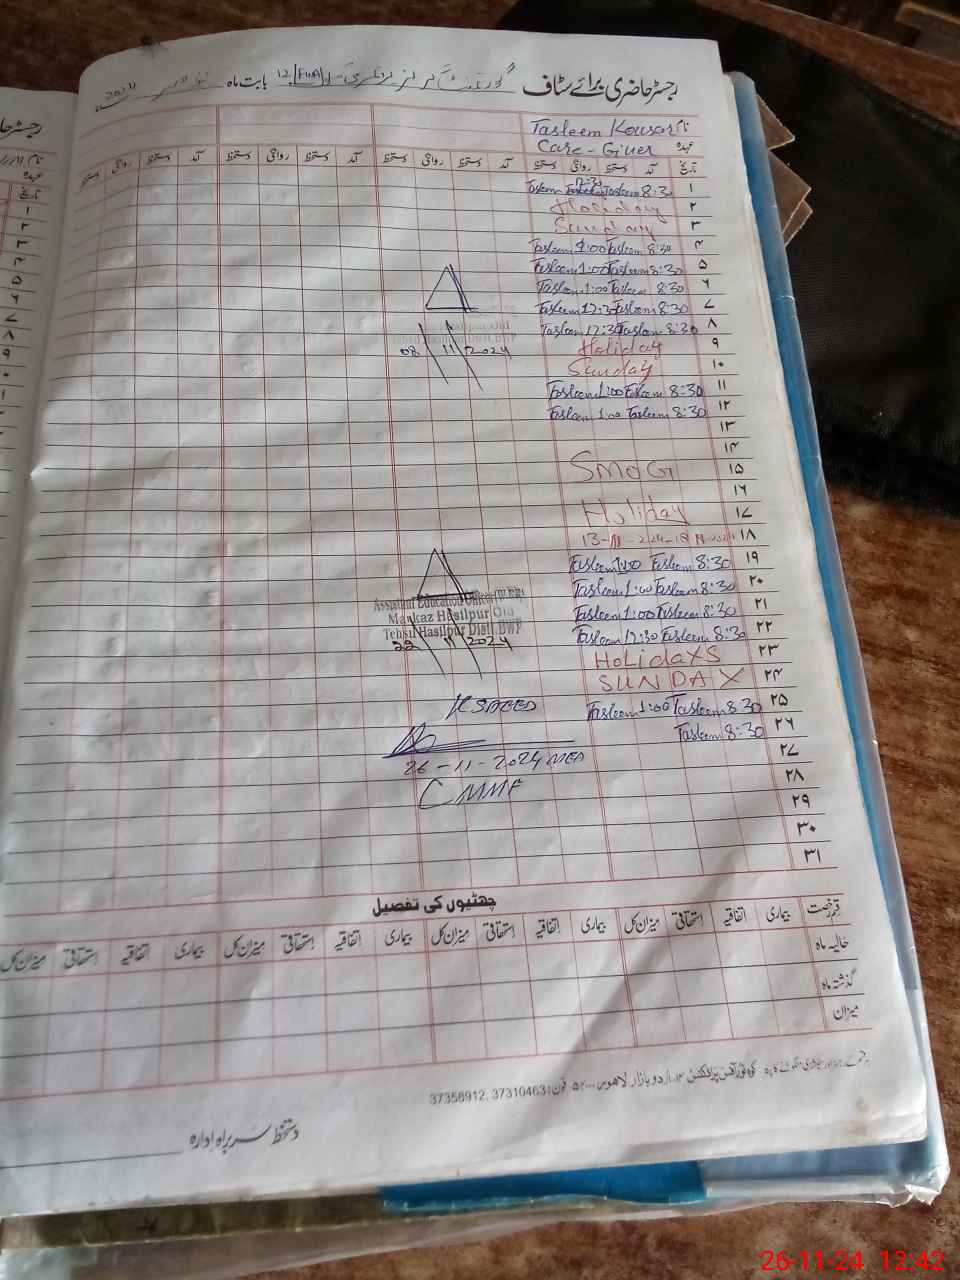 رجسٹر حاضری برائے سٹاف گورنمنٹ گرلز پرائمری 12/FWA بابت ماہ نومبر 2024ء
نام Tasleem Kousar
عہدہ Care-Giver
تاریخ آمد دستخط روانگی دستخط آمد دستخط روانگی دستخط آمد دستخط روانگی دستخط
۱ 8:30 Tasleem 12:30 Tasleem
۲ Holiday
۳ Sunday
۴ 8:30 Tasleem 1:00 Tasleem
۵ 8:30 Tasleem 1:00 Tasleem
۶ 8:30 Tasleem 1:00 Tasleem
۷ 8:30 Tasleem 12:30 Tasleem
۸ 8:30 Tasleem 12:30 Tasleem
08/11/2024
۹ Holiday
۱۰ Sunday
۱۱ 8:30 Tasleem 1:00 Tasleem
۱۲ 8:30 Tasleem 1:00 Tasleem
۱۳
۱۴
۱۵ SMOG
۱۶
۱۷ Holiday
۱۸ 13-11-2024-18-11-2024
۱۹ 8:30 Tasleem 1:00 Tasleem
۲۰ 8:30 Tasleem 1:00 Tasleem
۲۱ 8:30 Tasleem 1:00 Tasleem
۲۲ 8:30 Tasleem 12:30 Tasleem
Assistant Education Officer
Markaz Hasilpur Old
Tehsil Hasilpur Distt. BWP
22/11/2024
۲۳ HOLIDAYS
۲۴ SUNDAY
۲۵ 8:30 Tasleem 1:00 Tasleem
۲۶ 8:30 Tasleem
26-11-2024
۲۷
۲۸
۲۹
۳۰
۳۱
چھٹیوں کی تفصیل
قسم رخصت بیماری اتفاقیہ استحقاقی میزان کل بیماری اتفاقیہ استحقاقی میزان کل بیماری اتفاقیہ استحقاقی میزان کل بیماری اتفاقیہ استحقاقی میزان کل
حالیہ ماہ
گذشتہ ماہ
میزان
اردو بازار لاہور فون: 37310463, 37358912
دستخط سربراہ ادارہ
رجسٹر حا
نام
عہدہ
تاریخ
۱
۲
۳
۴
۵
۶
۷
۸
۹
26-11-24 12:42